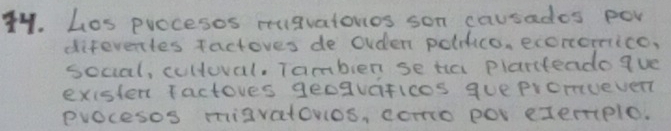 14. Los procesos migratorios son causados por
diferentes factores de orden político, economico,
social, cultural. Tambien se ha planteado que
existen factores geográficos que promueven
procesos migratorios, como por ejemplo.